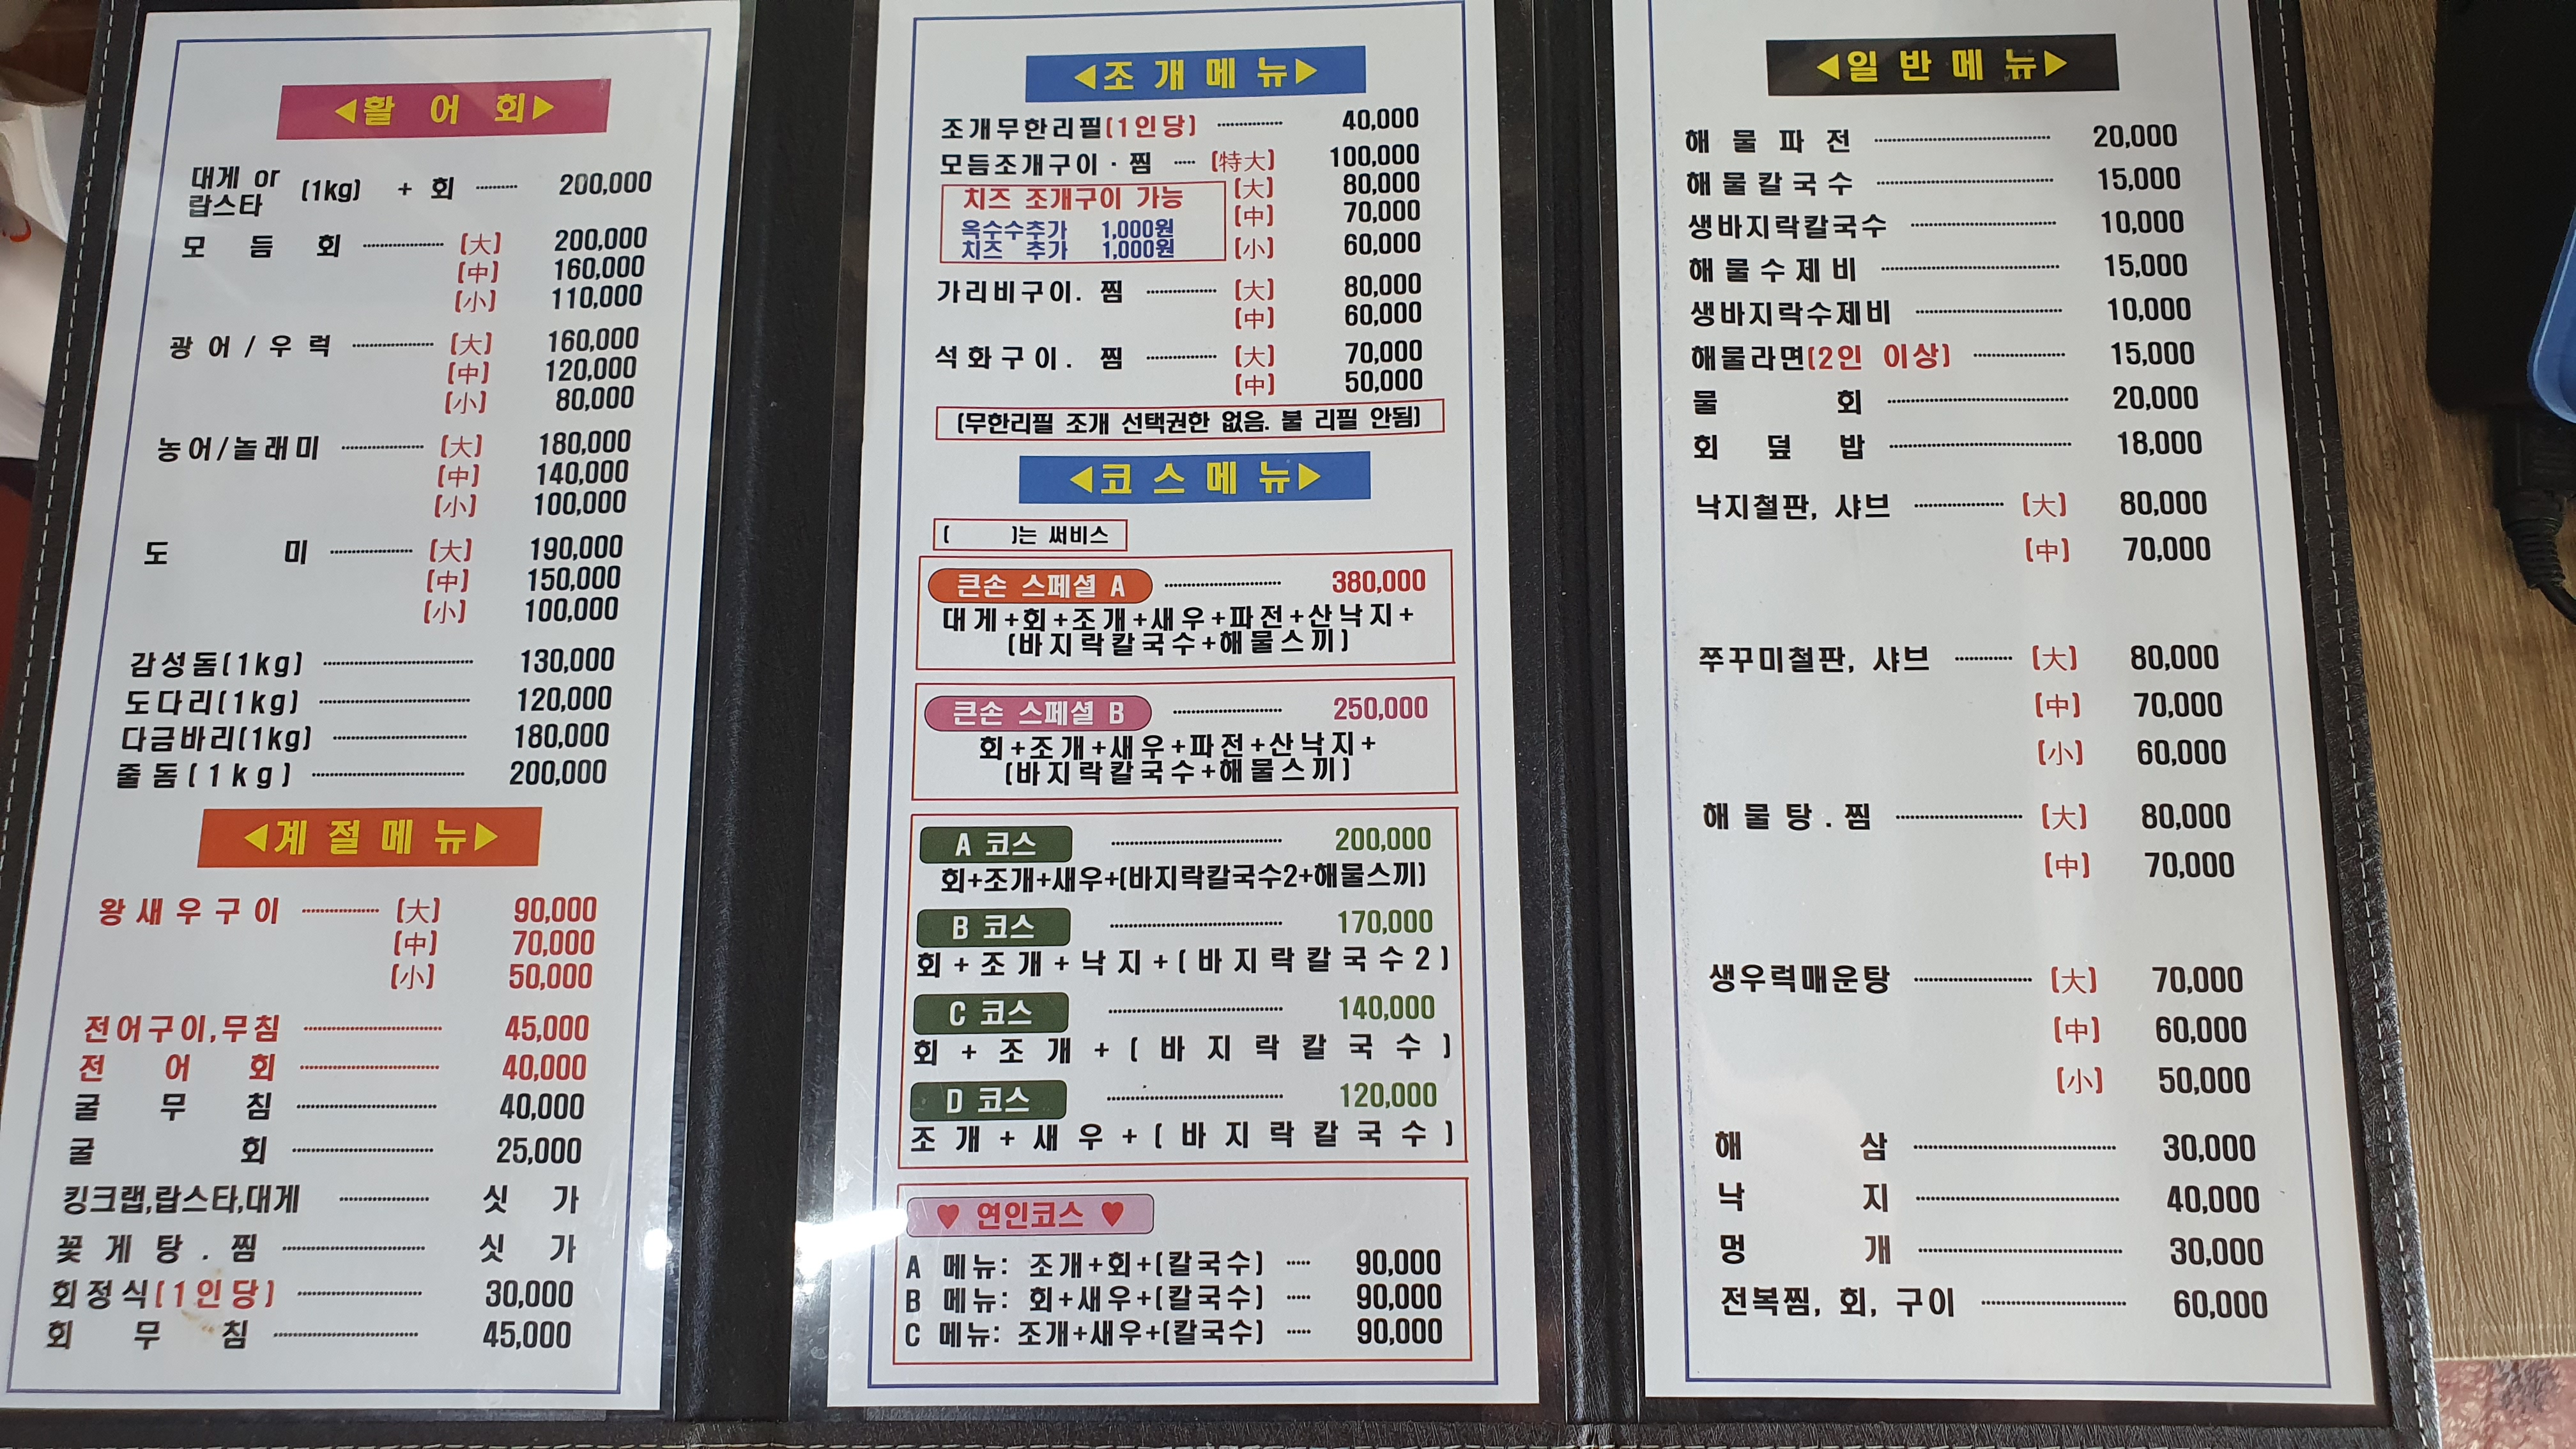 ◀활 어 회▶
대게 or 랍스타 (1kg) + 회 200,000
모 듬 회 (大) 200,000
(中) 160,000
(小) 110,000
광어/우럭 (大) 160,000
(中) 120,000
(小) 80,000
농어/놀래미 (大) 180,000
(中) 140,000
(小) 100,000
도 미 (大) 190,000
(中) 150,000
(小) 100,000
감성돔(1kg) 130,000
도다리(1kg) 120,000
다금바리(1kg) 180,000
줄돔(1kg) 200,000
◀계절메뉴▶
왕새우구이 (大) 90,000
(中) 70,000
(小) 50,000
전어구이,무침 45,000
전 어 회 40,000
굴 무 침 40,000
굴 회 25,000
킹크랩,랍스타,대게 싯 가
꽃게탕.찜 싯 가
회정식(1인당) 30,000
회 무 침 45,000
◀조개메뉴▶
조개무한리필(1인당) 40,000
모듬조개구이·찜 (特大) 100,000
(大) 80,000
(中) 70,000
(小) 60,000
치즈 조개구이 가능
옥수수추가 1,000원
치즈 추가 1,000원
가리비구이. 찜 (大) 80,000
(中) 60,000
석화구이. 찜 (大) 70,000
(中) 50,000
(무한리필 조개 선택권한 없음. 불 리필 안됨)
◀코스메뉴▶
( )는 써비스
큰손 스페셜 A 380,000
대게+회+조개+새우+파전+산낙지+
(바지락칼국수+해물스끼)
큰손 스페셜 B 250,000
회+조개+새우+파전+산낙지+
(바지락칼국수+해물스끼)
A 코스 200,000
회+조개+새우+(바지락칼국수2+해물스끼)
B 코스 170,000
회+조개+낙지+(바지락칼국수2)
C 코스 140,000
회+조개+(바지락칼국수)
D 코스 120,000
조개+새우+(바지락칼국수)
♥ 연인코스 ♥
A 메뉴: 조개+회+(칼국수) 90,000
B 메뉴: 회+새우+(칼국수) 90,000
C 메뉴: 조개+새우+(칼국수) 90,000
◀일반메뉴▶
해물파전 20,000
해물칼국수 15,000
생바지락칼국수 10,000
해물수제비 15,000
생바지락수제비 10,000
해물라면(2인 이상) 15,000
물 회 20,000
회 덮 밥 18,000
낙지철판, 샤브 (大) 80,000
(中) 70,000
쭈꾸미철판, 샤브 (大) 80,000
(中) 70,000
(小) 60,000
해물탕.찜 (大) 80,000
(中) 70,000
생우럭매운탕 (大) 70,000
(中) 60,000
(小) 50,000
해 삼 30,000
낙 지 40,000
멍 개 30,000
전복찜, 회, 구이 60,000